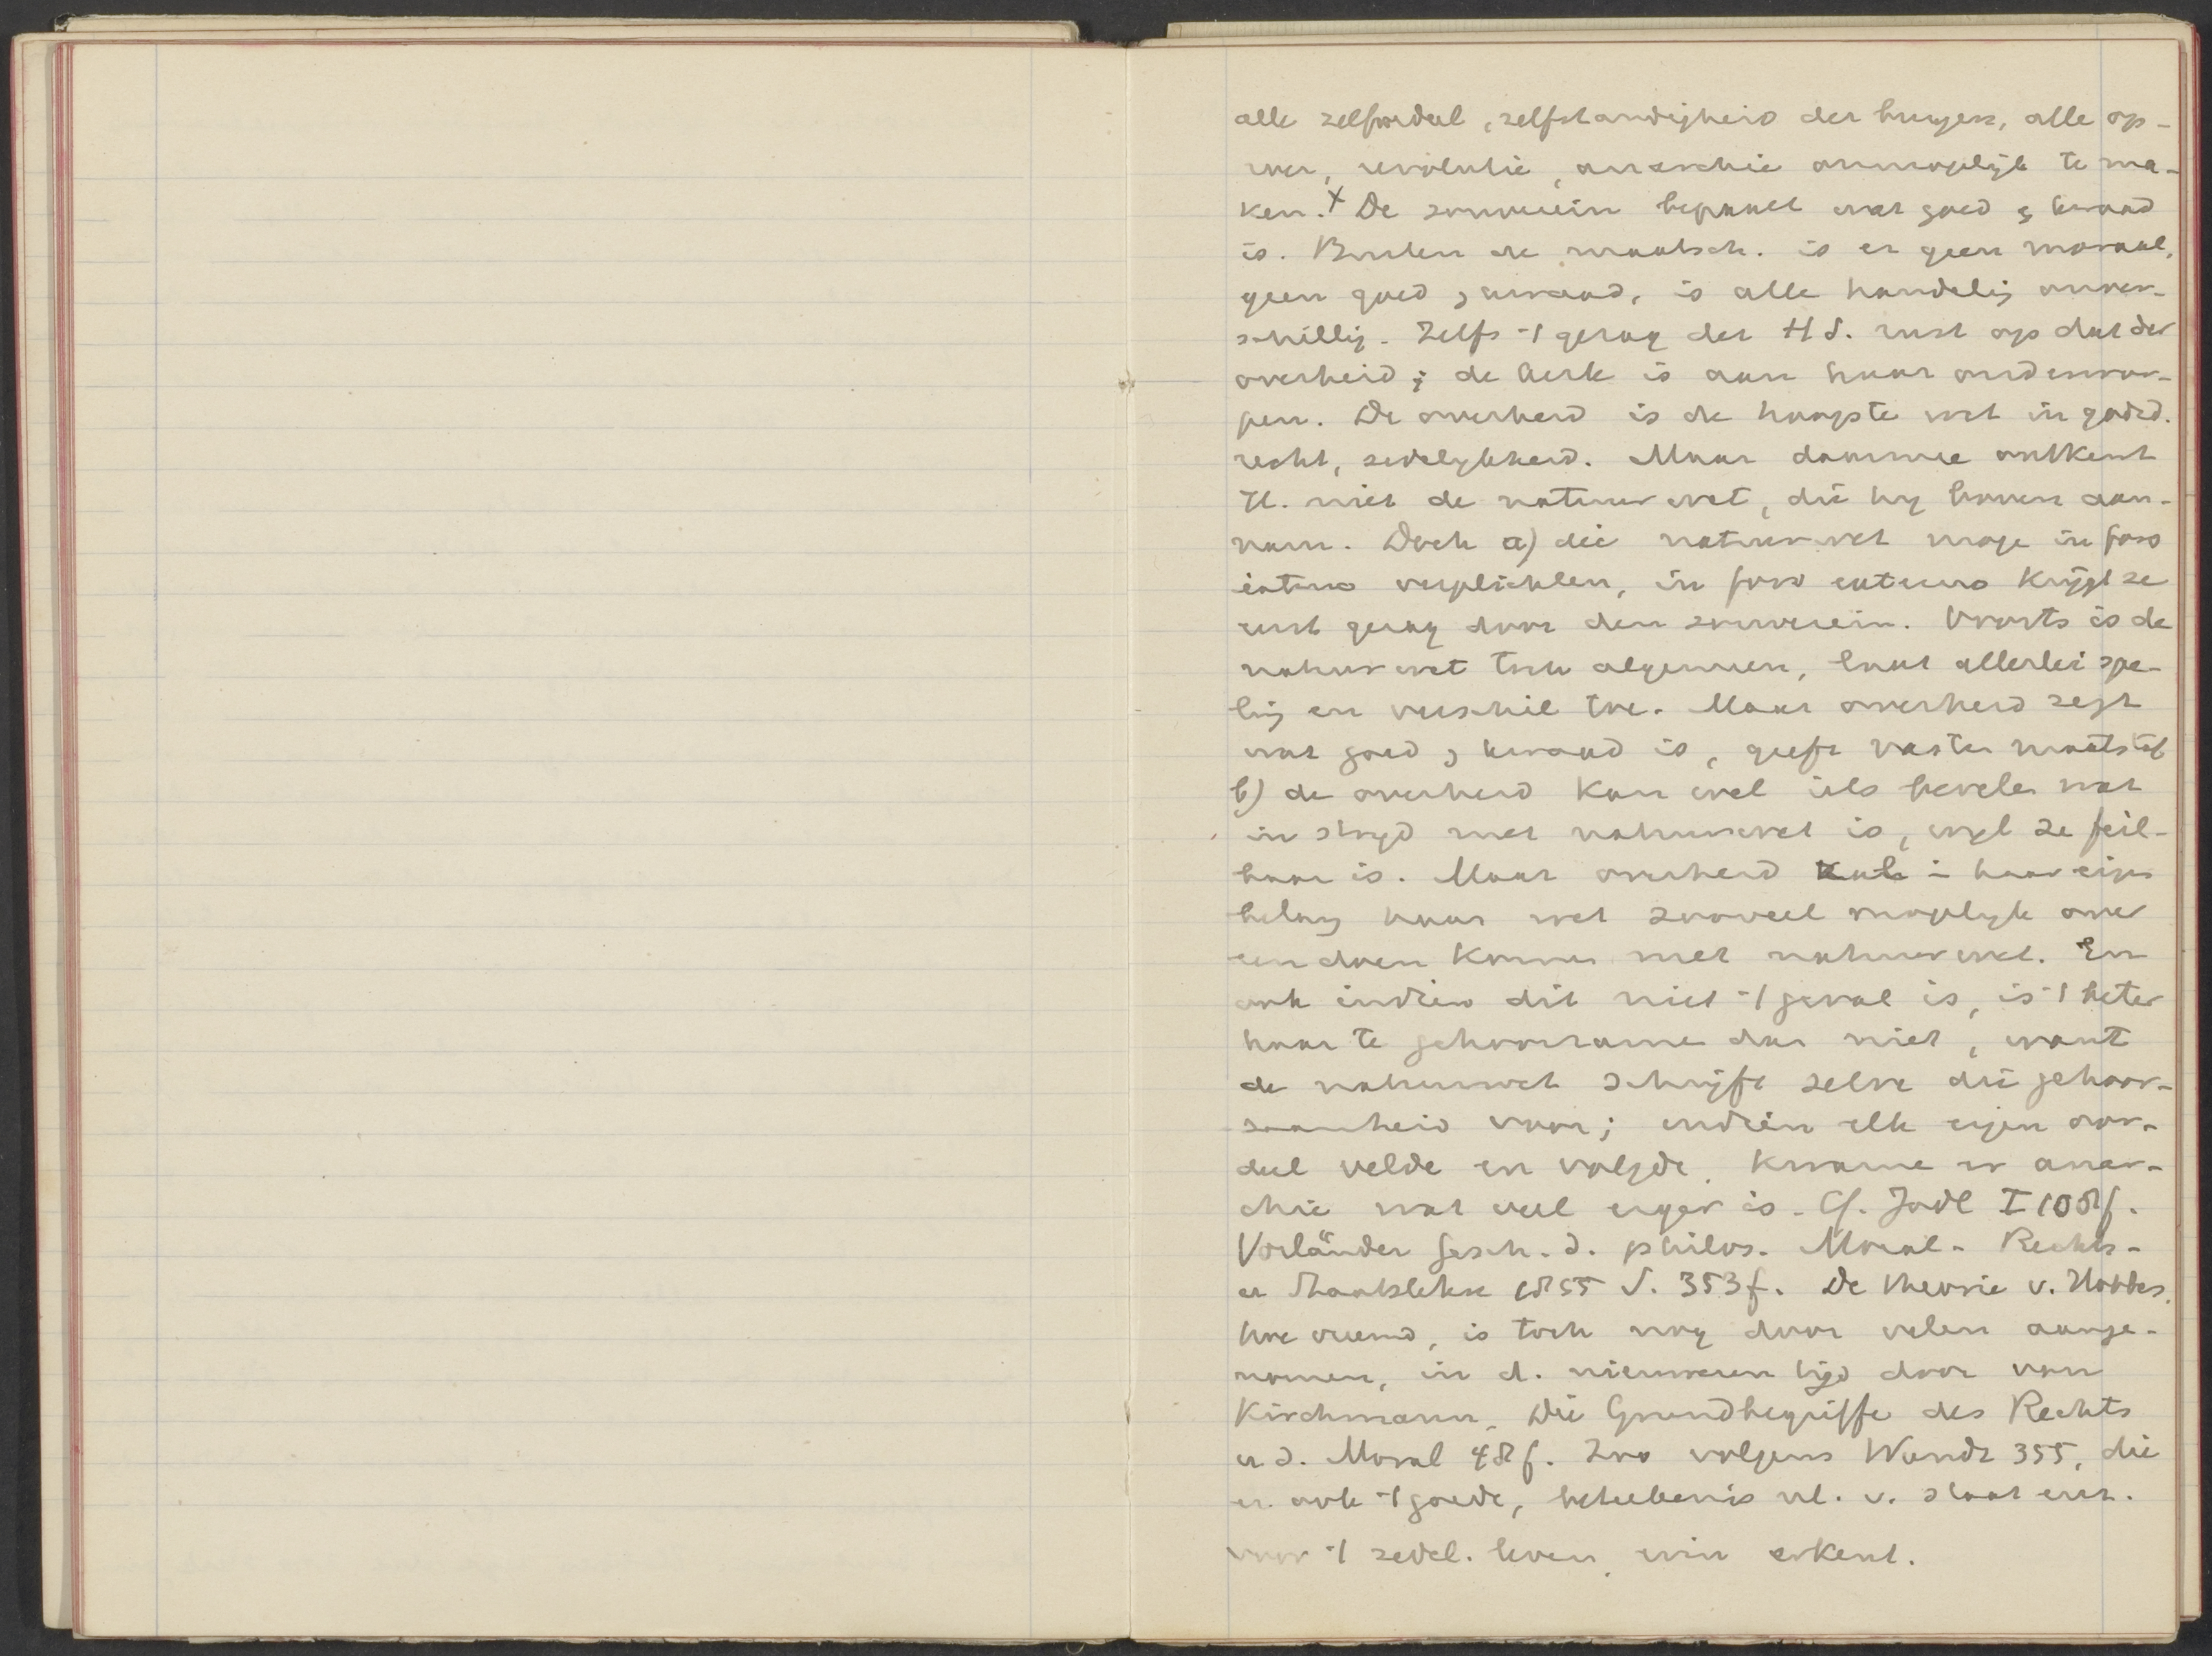 alle zelfoordeel, zelfstandigheid der burgers, alle op-
roer, revolutie, anarchie onmogelijk te ma-
ken. x De souverein bepaalt wat goed & kwaad
is. Buiten de maatsch. is er geen moraal,
geen goed & kwaad, is alle handelig onver-
schillig. Zelfs 't gezag der H S. rust op dat der
overheid; de kerk is aan haar onderwor-
pen. De overheid is de hoogste wet in godsd.
recht, zedelijkheid. Maar daarmee ontkent
H. niet de natuurwet, die hij boven aan-
nam. Doch a) die natuurwet moge in foro
interno verplichten, in foro externo krijgt ze
eerst gezag door den souverein. Voorts is de
natuurwet toch algemeen, laat allerlei spe-
ling en verschil toe. Maar overheid zegt
wat goed & kwaad is, geeft vasten maatstaf
b) de overheid kan wel iets bevelen wat
in strijd met natuurwet is, wijl ze feil-
baar is. Maar overheid zal in haar eigen
belang haar wet zooveel mogelijk over
een doen komen met natuurwet. En
ook indien dit niet 't geval is, is 't beter
haar te gehoorzamen dan niet, want
de natuurwet schrijft zelve die gehoor-
zaamheid voor; indien elk eigen oor-
deel velde en volgde, kwame er anar-
chie wat veel erger is. Cf. Jodl I 108f.
Vorländer Gesch. d. philos. Moral- Rechts-
u Staatslehre 1855 S. 353f. De theorie v. Hobbes,
hoe vreemd, is toch nog door velen aange-
nomen, in d. nieuweren tijd door von
Kirchmann, Die Grundbegriffe des Rechts
u d. Moral 48f. Zoo volgens Wundt 355, die
er ook 't goede, beteekenis nl. v. staat enz.
voor 't zedel. leven, in erkent.